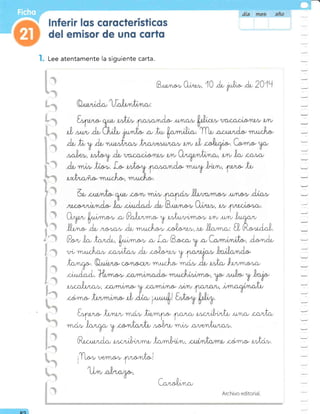 Ficha
21
Inferir las características
del emisor de una carta
día mes año
1. Lee atentamente la siguiente carta.
Buenos Aires, 10 de julio de 2014
Querida Valentina:
Espero que estés pasando unas felices vacaciones en
el sur de Chile junto a tu familia. Me acuerdo mucho
de ti y de nuestras travesuras en el colegio. Como ya
sabes, estoy de vacaciones en Argentina, en la casa
de mis tíos. Lo estoy pasando muy bien, pero te
extraño mucho, mucho.
Te cuento que con mis papás llevamos unos días
recorriendo la ciudad de Buenos Aires, es preciosa.
Ayer fuimos a Palermo y estuvimos en un lugar
lleno de rosas de muchos colores, se llama: El Rosedal.
Por la tarde, fuimos a La Boca y a Caminito, donde
vi muchas casitas de colores y parejas bailando
tango. Quiero conocer mucho más de esta hermosa
ciudad. Hemos caminado muchísimo, yo subo y bajo
escaleras, camino y camino sin parar, ¡imagínate
cómo termino el día; ¡uuuf! Estoy feliz.
Espero tener más tiempo para escribirte una carta
más larga y contarte sobre mis aventuras.
Recuerda escribirme también, cuéntame cómo estás.
¡Nos vemos pronto!
Un abrazo,
Carolina
Archivo editorial.